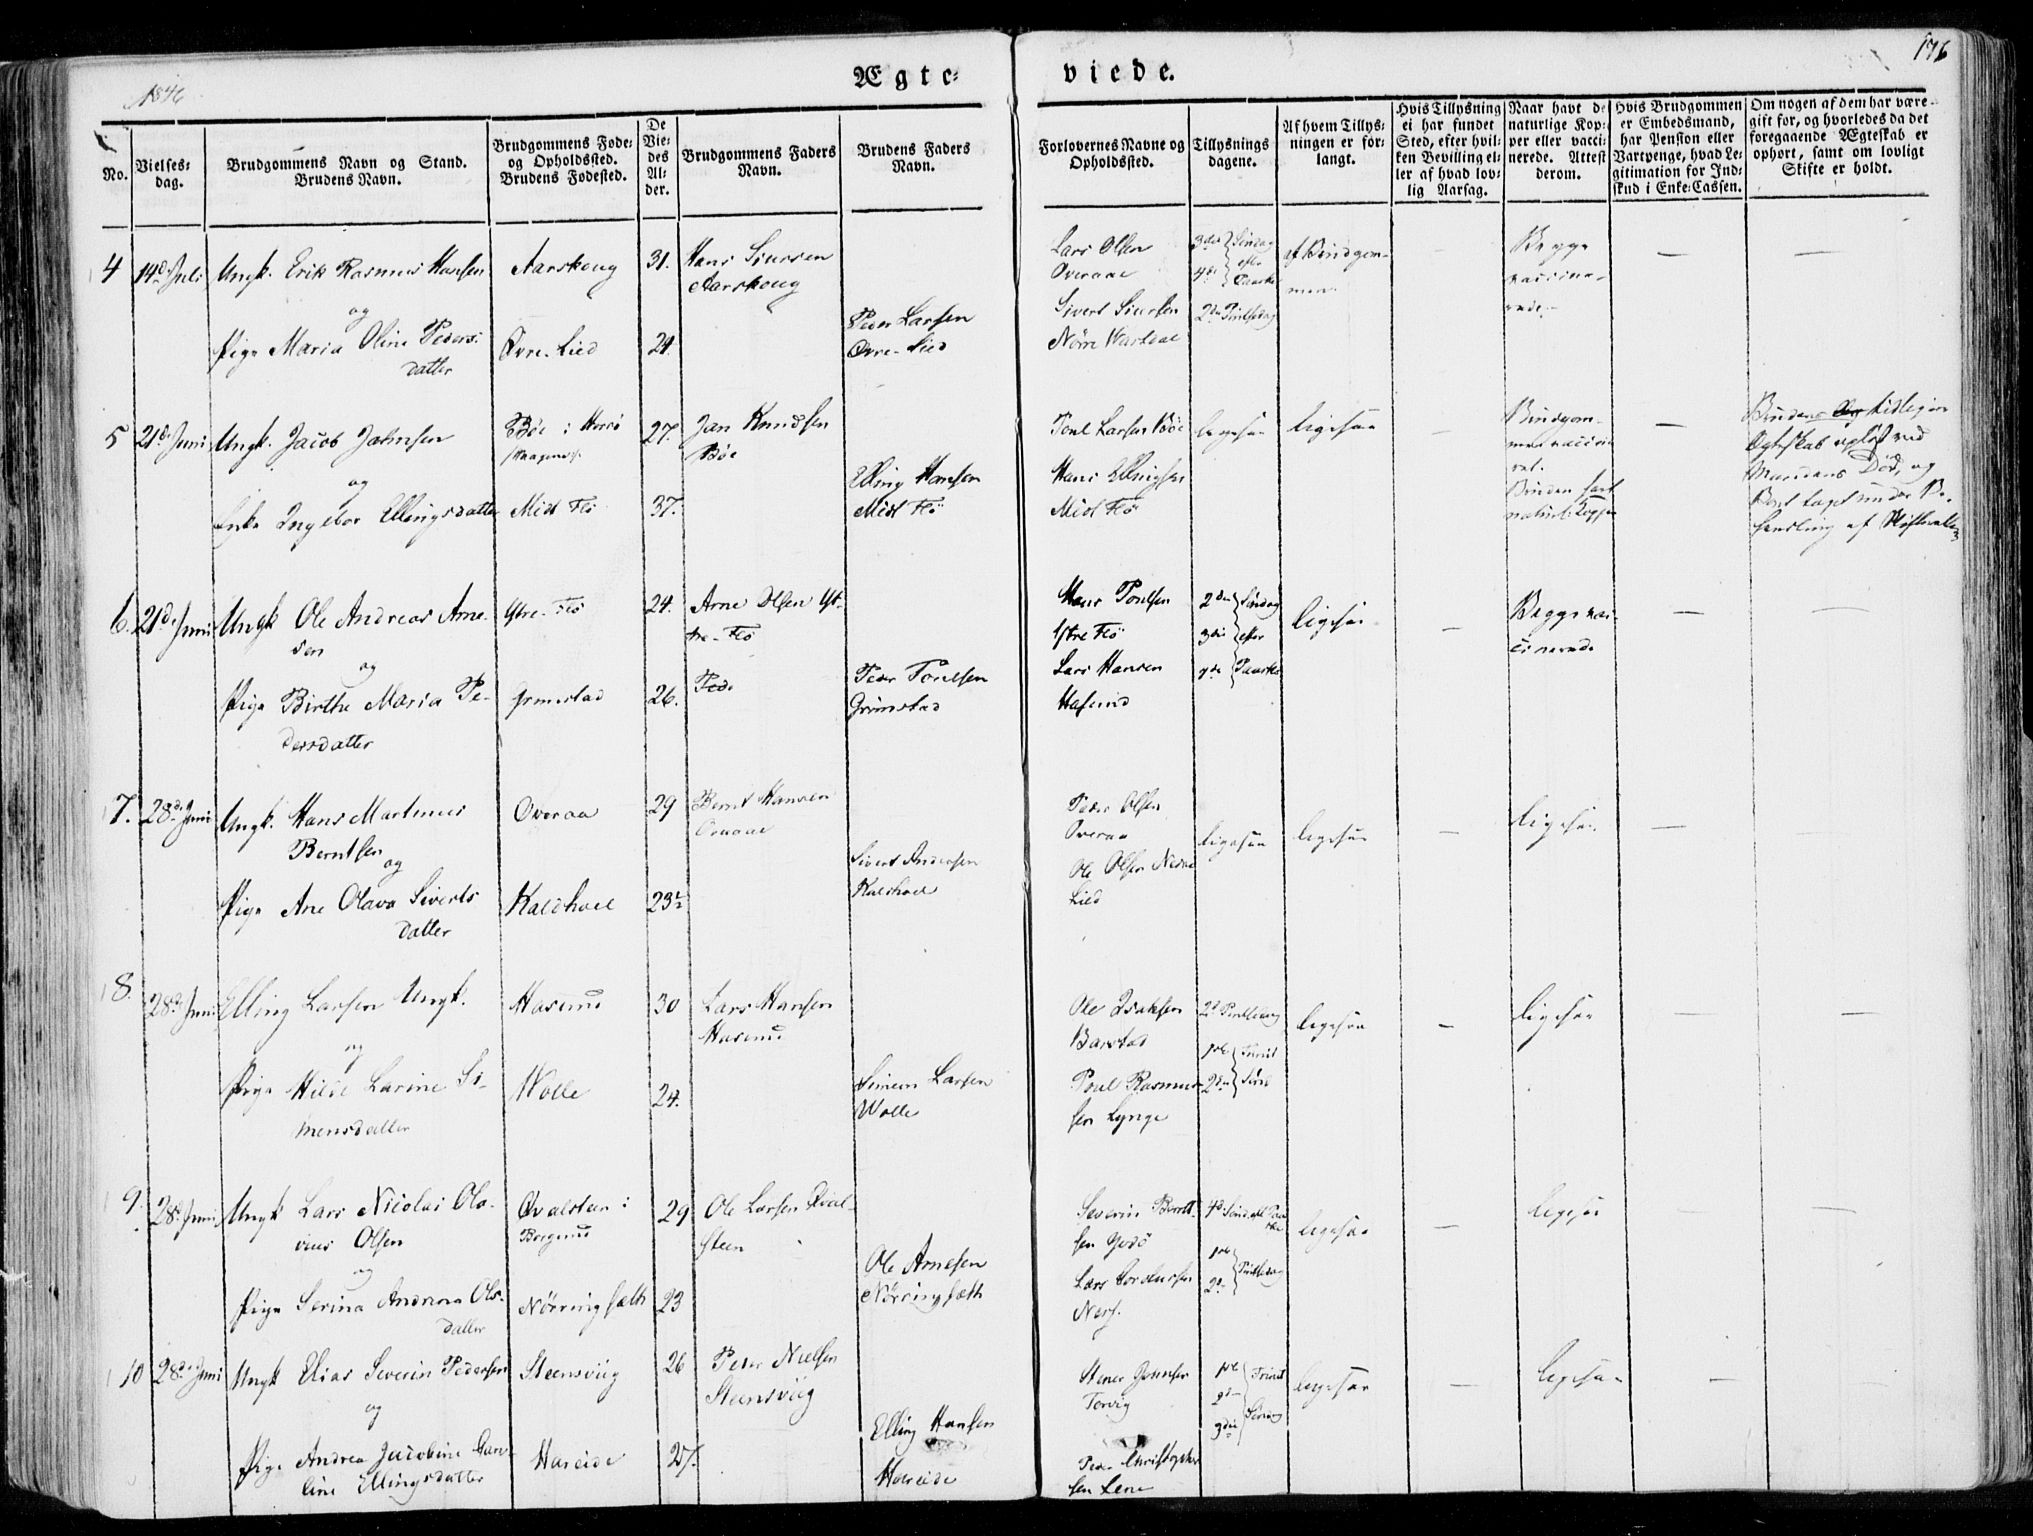 1846
Ægte-
viede.
176
No.
Vielses-
dag.
Brudgommens Navn og Stand.
Brudens Navn.
Brudgommens Føde-
og Opholdssted.
Brudens Fødested.
De
Vie-
des
Al-
der.
Brudgommens Faders
Navn.
Brudens Faders
Navn.
Forlovernes Navne og
Opholdssted.
Tillysnings
dagene.
Af hvem Tillys-
ningen er for-
langt.
Hvis Tillysning
ei har fundet
Sted, efter hvil-
ken Bevilling el-
ler af hvad lov-
lig Aarsag.
Naar havt de
naturlige Kop-
per eller vacci-
nerede. Attest
derom.
Hvis Brudgommen
er Embedsmand,
har Pension eller
Vartpenge, hvad Le-
gitimation for Ind-
skud i Enke-Cassen.
Om nogen af dem har være-
gift før, og hvorledes da det
foregaaende Ægteskab er
ophørt, samt om lovligt
Skifte er holdt.
4
14d Juli
Ungk. Erik Rasmus Hansen
og
Pige Maria Oline Peders-
datter
Aarskoug
Øvre-Lied
31.
24.
Hans Siursen
Aarskoug
Peder Larsen
Øvre-Lied
Lars Olsen
Overaae
Sivert Siursen
Nørre Vartdal
3die 4de Søndag
efter
Paaske
2den Pintsedag
af Brudgom-
men.
Begge
vaccine-
rede.
5
21d Juni
Ungk. Jacob Jahnsen
og
Enke Ingebor Ellingsdatter
Bøe i Herrø
Midt Flø
27.
37.
Jan Knudsen
Bøe
Elling Hansen
Midt Flø
Poul Larsen Bøe
Hans Ellingsen
Midt Flø
ligesaa
ligesaa
Brudgom-
men vacci-
net.
Bruden havt
naturl: Kopper
Brudens tidligere
Ægteskab opløst ved
Mandens Død, og
Boet taget under Be-
handling af Skifteretten
6.
21d Juni
Ungk Ole Andreas Arne-
sen
og
Pige Birthe Maria Pe-
dersdatter
Ytre-Flø
Grimstad
24.
26.
Arne Olsen Yt-
tre-Flø
Pede
Peder Poulsen
Grimstad
Hans Poulsen
Ytre Flø
Lars Hansen
Hasund
2den 3die 4de
Søndag
efter
Paaske
ligesaa
Begge vac-
cinerede
7.
28d Juni
Ungk. Hans Martinus
Berntsen
og
Pige Ane Olava Siverts
datter
Overaa
Kaldhoel
29
23½
Bernt Hansen
Overaae
Sivert Andersen
Kaldhoel
Peder Olsen
Overaa
Ole Olsen Nedre
Lied
ligesaa
ligesaa
ligesaa
8.
28d Juni
Elling Larsen Ungk.
og
Pige Hilde Larine Si-
mensdatter
Hasund
Wolle
30
24.
Lars Hansen
Hasund
Simen Larsen
Wolle
Ole Isaksen
Barstad
Poul Rasmus-
sen Lynge
2d Pintsedag
1ste 2den Trinit
Sønd
ligesaa
ligesaa
9.
28d Juni
Ungk Lars Nicolai Ola-
vius Olsen
og
Pige Serina Andrea Ols-
datter
Qvalsteen i
Borgund
Nörringsæth
29
23
Ole Larsen Qval-
steen
Ole Arnesen
Nörringsæth
Severin Berndt-
sen Godø
Lars
4d Sønd eft Paa
ske
1ste 2den Pintsedag
ligesaa
ligesaa
10
28d Juni
Ungk Elias Severin Pedersen
og
Pige Andrea Jacobine Caro-
line Ellingsdatter
Steensviig
Hareide
26
27.
Peder Nielsen
Steensviig
Elling Hansen
Hareide
Stener Jonsen
Torvig
Peder Christopher
sen Lene
1ste 2den 3die
Trinit
Søndag
ligesaa
ligesaa